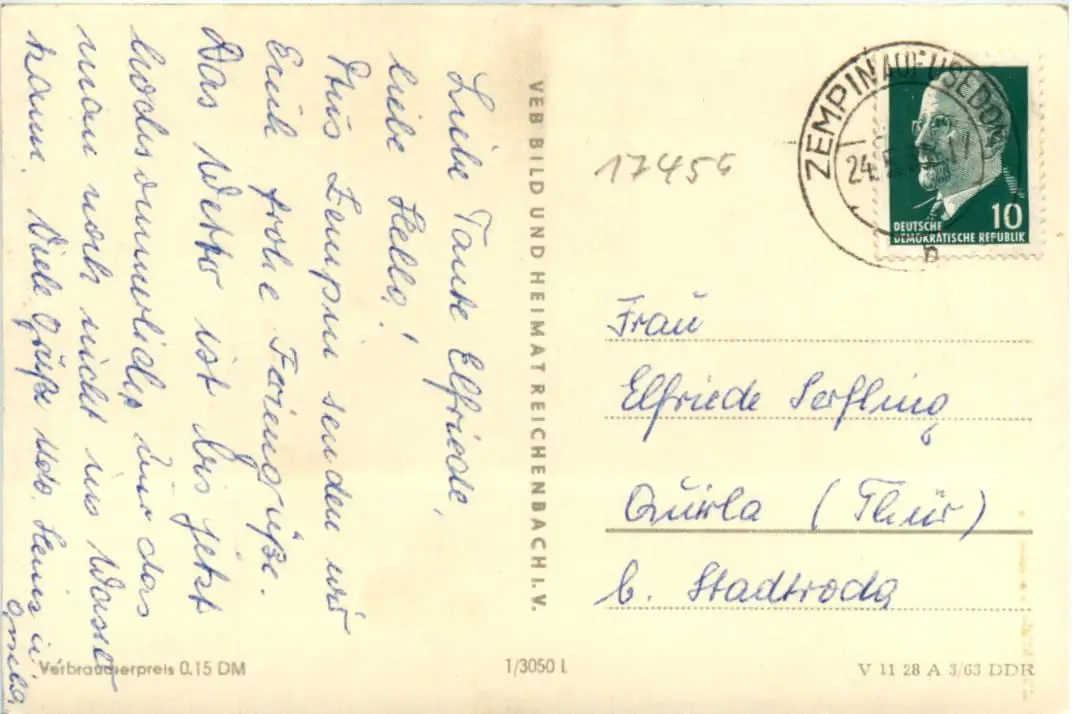 Liebe Tante Elfriede,
liebe Hella!
Aus Zempin senden wir
Euch frohe Feriengrüße.
Das Wetter ist bis jetzt
hochsommerlich, nur das
man noch nicht ins Wasser
kann. Viele Grüße Udo. Heinz u.
VEB BILD UND HEIMAT REICHENBACH I. V.
17456
ZEMPIN AUF USEDOM
24.5.
b
10
DEUTSCHE
DEMOKRATISCHE REPUBLIK
Frau
Elfriede Serfling
Quirla (Thür)
b. Stadtroda
Verbraucherpreis 0.15 DM
1/3050 L
V 11 28 A 3/63 DDR